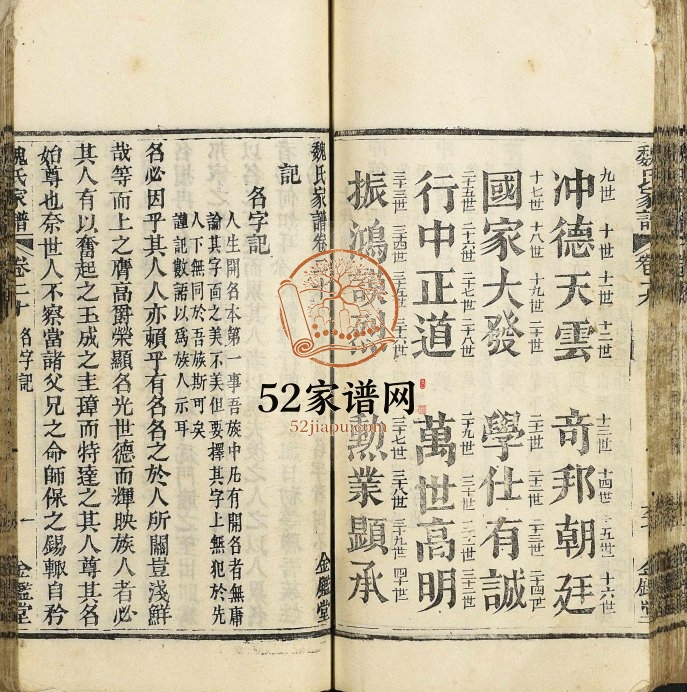 魏氏家譜
卷九
金鑑堂
九世 十世 十一世 十二世 十三世 十四世 十五世 十六世
冲德天雲 奇邦朝廷
十七世 十八世 十九世 二十世 二十一世 二十二世 二十三世 二十四世
國家大發 學仕有誠
二十五世 二十六世 二十七世 二十八世 二十九世 三十世 三十一世 三十二世
行中正道 萬世高明
三十三世 三十四世 三十六世 三十七世 三十八世 三十九世 四十世
振鴻謨烈 勲業顕承
魏氏家譜卷
金鑑堂
記
名字記
人生開名本第一事吾族中凡有開名者無庸
論其字面之美不美但要擇其字上無犯於先
人下無同於吾族斯可矣
謹記數語以爲族人示耳
名必因乎其人人亦頼乎有名名之於人所關豈淺鮮
哉等而上之膺高爵榮顯名光世德而輝映族人者必
其人有以奮起之玉成之圭璋而特達之其人尊其名
始尊也奈世人不察當諸父兄之命師保之錫輙自矜
魏氏家譜
卷二十 名字記
一
金鑑堂
52家谱网
52jiapu.com